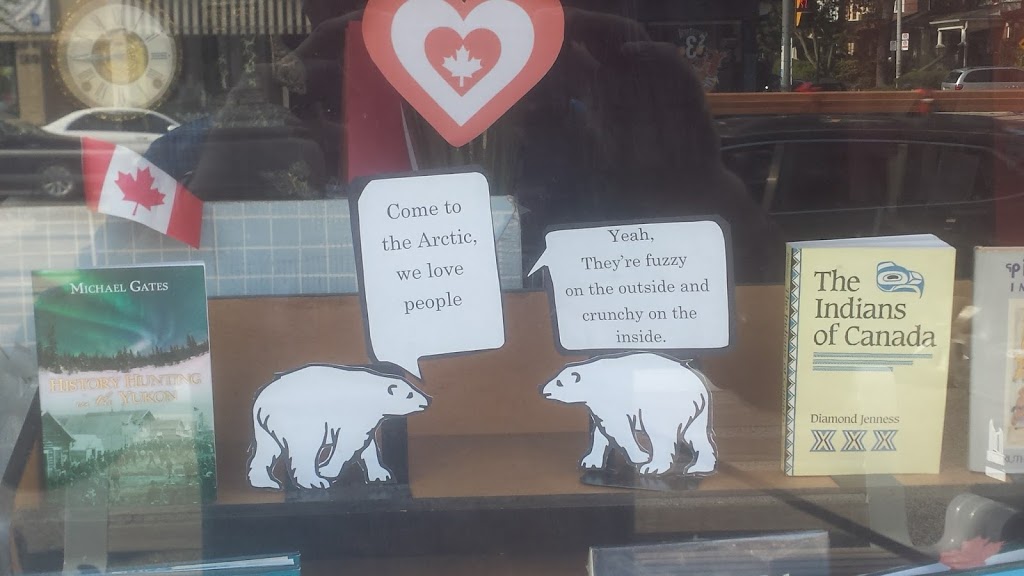 Come to
the Arctic,
we love
people
Yeah,
They're fuzzy
on the outside and
crunchy on the
inside.
MICHAEL GATES
HISTORY HUNTING
IN THE YUKON
The
Indians
of Canada
Diamond Jenness